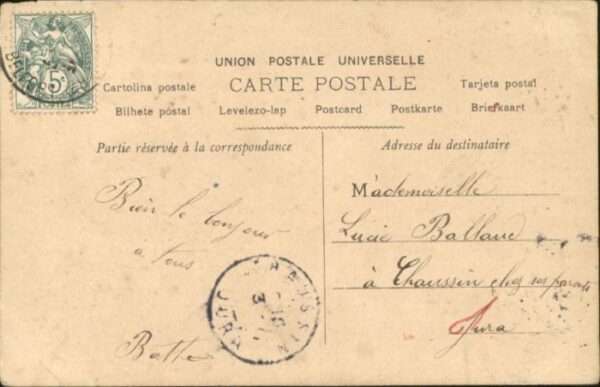 UNION POSTALE UNIVERSELLE
CARTE POSTALE
Cartolina postale
Tarjeta postal
Bilhete postal Levelezo-lap Postcard Postkarte Briefkaart
Partie réservée à la correspondance
Adresse du destinataire
Bien le bonjour
à tous
Mademoiselle
Lucie Balland
à Chaussin chez ses parents
Jura
5
CHAUSSIN
JURA